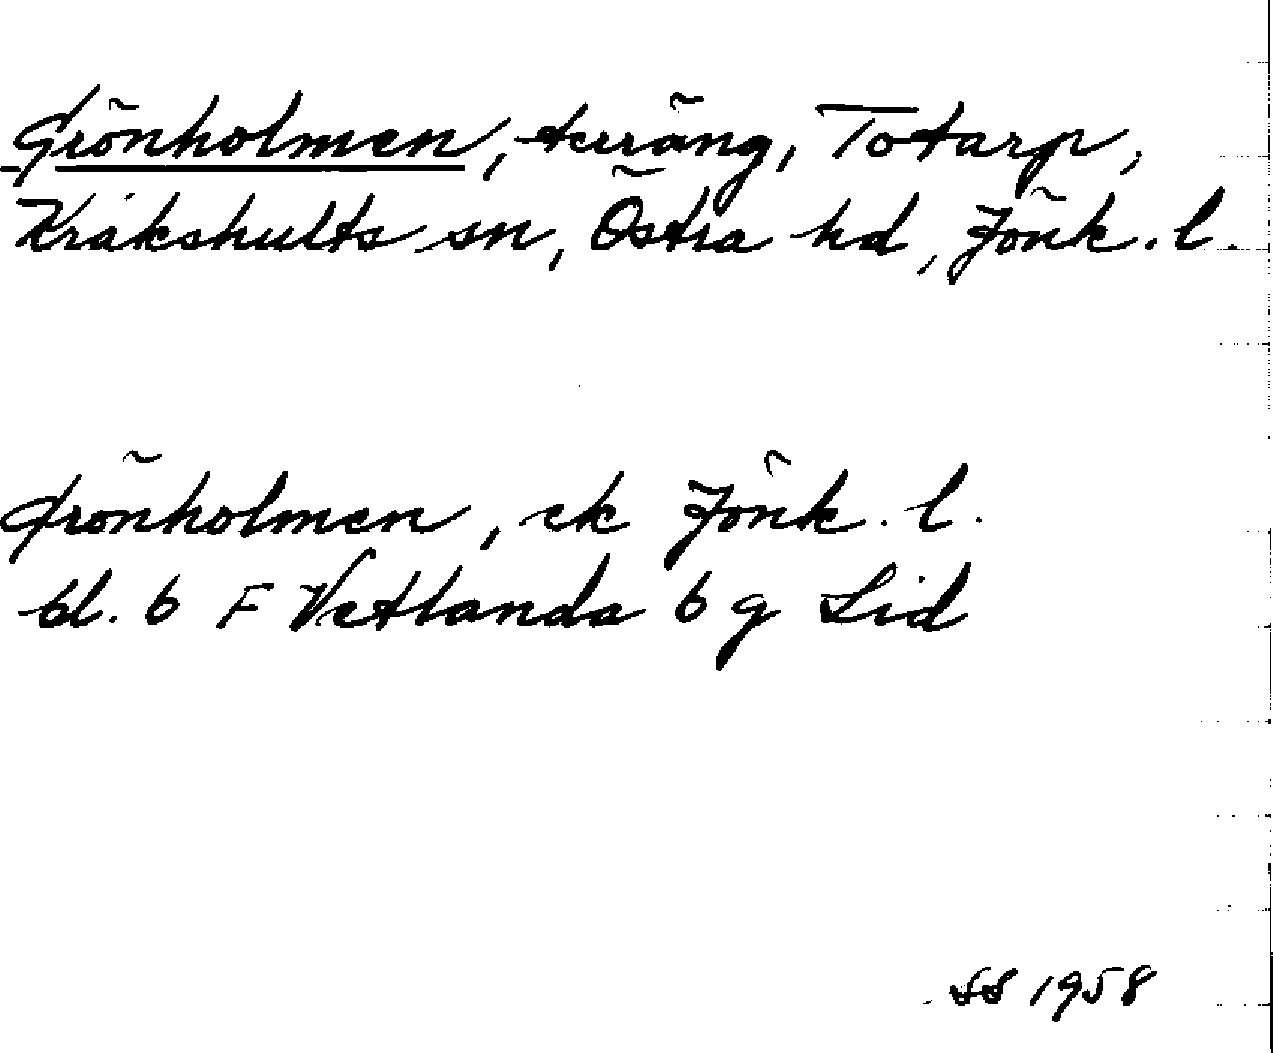 Grönholmen, terräng, Totarp,
Kråkshults sn, Östra hd, Jönk. l.
Grönholmen, ek Jönk. l.
bl. 6 F Vetlanda 6 g Lid
SS 1958